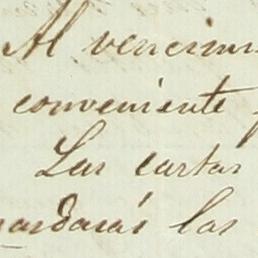 Al vencimi
conveniente
Las cartas
nardarás las